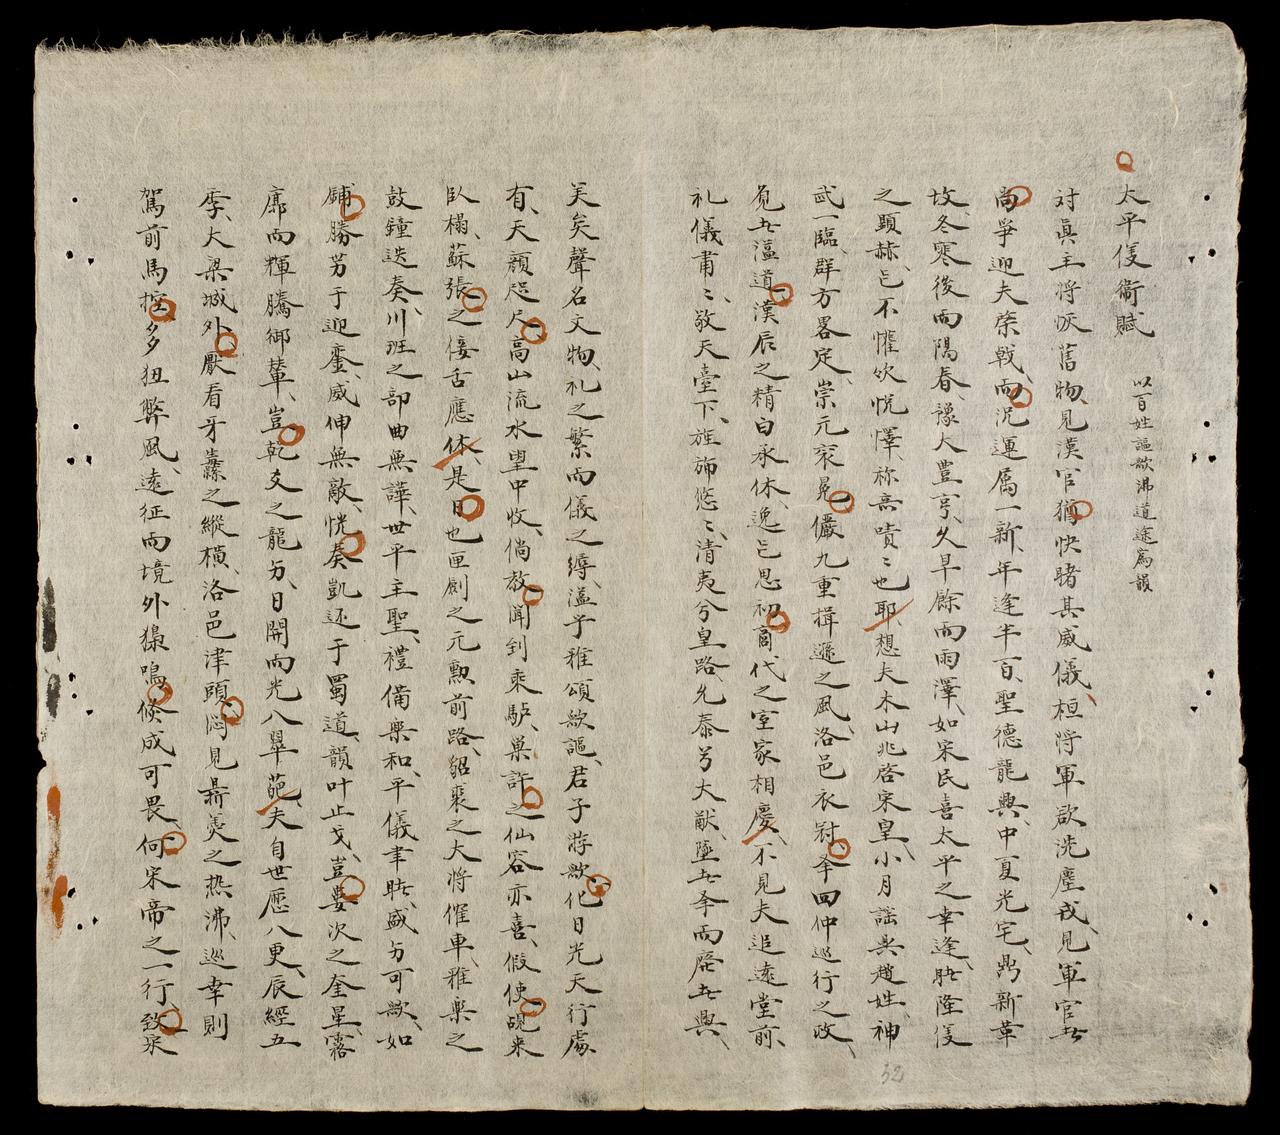 太平仗衛賦 以百姓謳歌沸道途為韻
対眞主将恢舊物見漢官猶快睹其威儀桓将軍欲洗塵戎見軍官
尚爭迎夫棨戟而況運属一新年逢半百聖德龍興中夏光宅鼎新革
故冬寒後而陽春豫大豊亨久旱餘而雨澤如宋民喜太平之幸逢隆仗
之顕赫不懽欣悅懌称嘖〻也耶想夫木山兆啓宋皇小月謡興趙姓神
武一臨群方畧定崇元衮冕儼九重揖遜之風洛邑衣冠四仲巡行之政
溢道漢辰之精白承休逸思初商代之室家相慶不見夫追遠堂前
礼儀肅〻敬天臺下旌斾悠〻清夷兮皇路允泰大猷而興
美矣聲名文物礼之繁而儀之縟溢乎雅頌歌謳君子游歌化日光天行處
有天顔咫尺高山流水望中收倘教聞到乘驢巢許之仙容亦喜假使覘来
臥榻蘇張之侫舌應休是日也匣劍之元勲前路貂裘之大将催車雅楽之
鼓鐘迭奏川班之部曲無譁世平主聖禮備樂和平儀聿盛可歌如
鋪勝于迎鑾威伸無敵恍奏凱还于蜀道韻叶止戈豈要次之奎星露
廓而輝騰御輦豈乾爻之龍日開而光八翠葩夫自世愿八更辰經五
季大梁城外厭看牙纛之縱橫洛邑津頭悶見之热沸巡幸則
駕前馬控多狃弊風遠征而境外獍鳴倏成可畏何宋帝之一行致
32